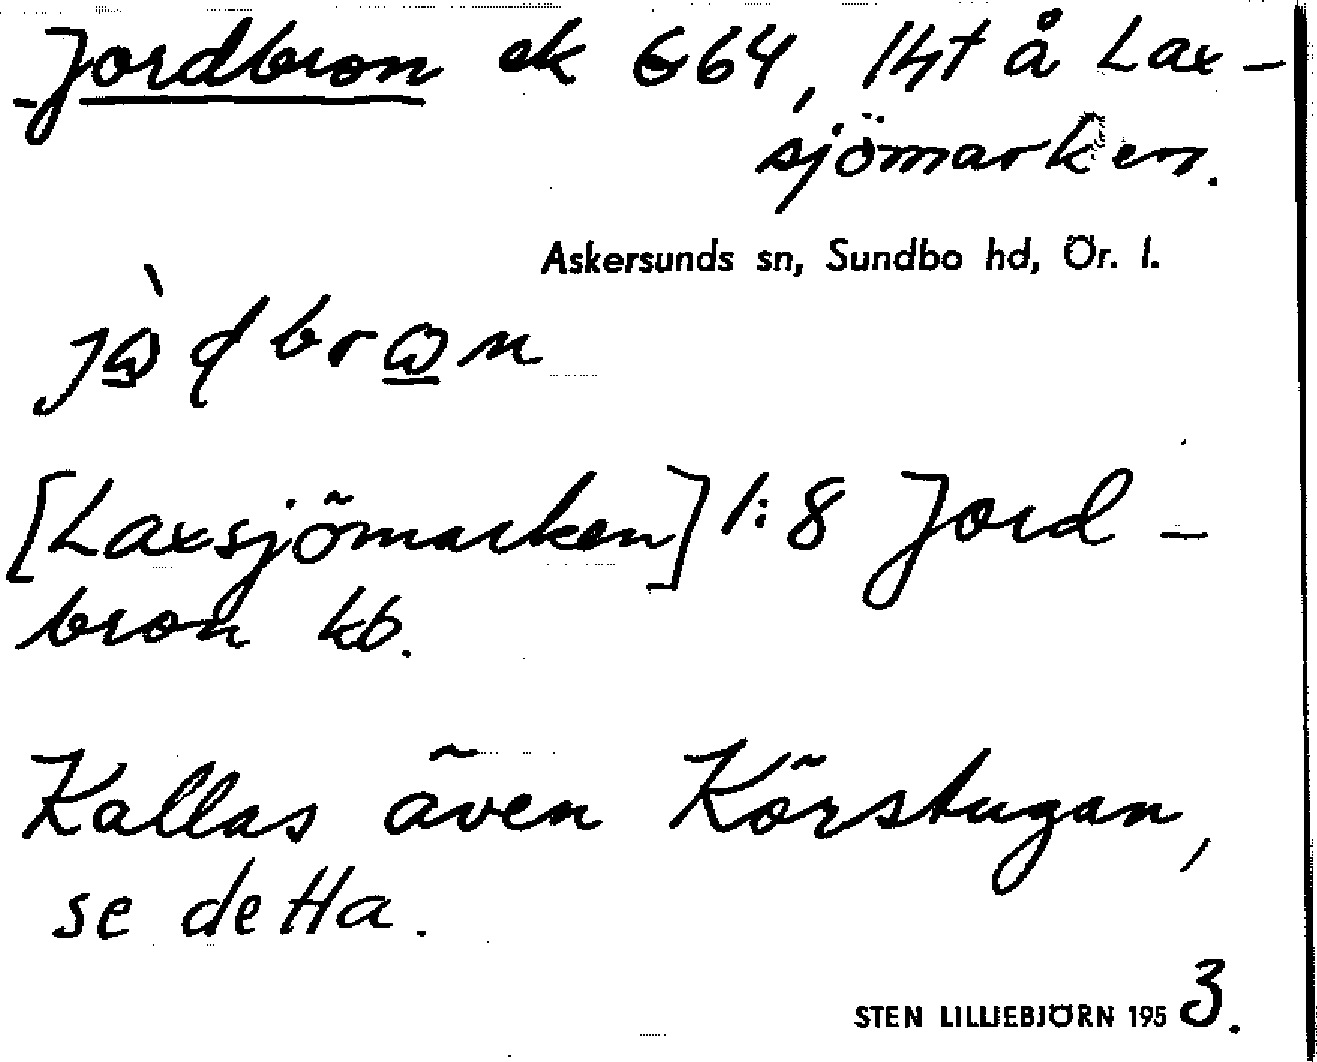 Jordbron ek 664, lht å Lax-
sjömarken.
Askersunds sn, Sundbo hd, Ör. l.
[Laxsjömarken] 1:8 Jord-
bron kb.
Kallas även Körstugan,
se detta.
STEN LILLIEBJÖRN 1953.